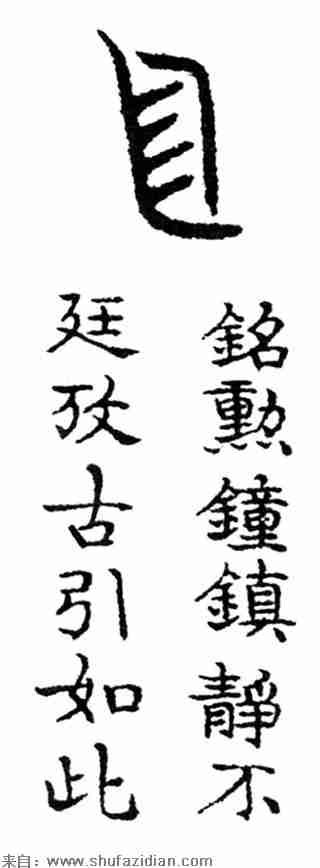 銘勳鐘鎮靜不
廷攷古引如此
来自: www.shufazidian.com